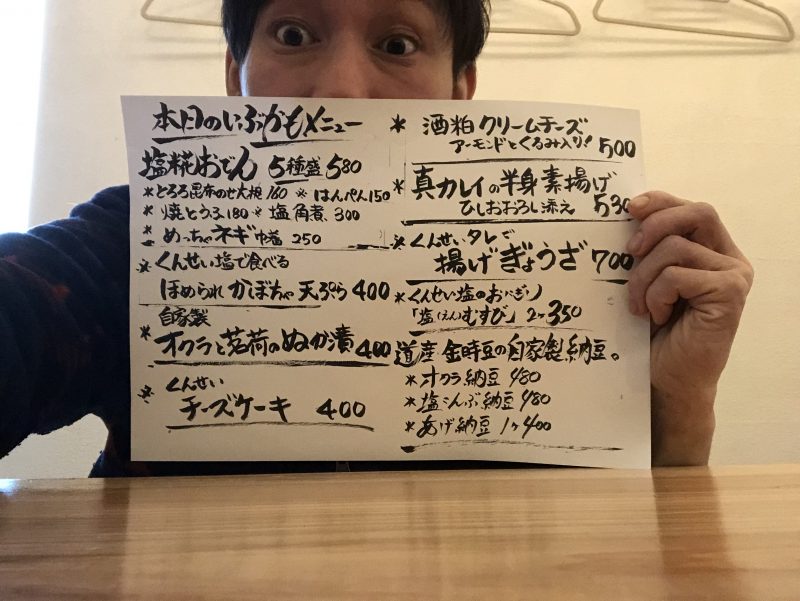 本日のいぶかもメニュー
塩糀おでん 5種盛 580
*とろろ昆布のせ大根 160 *はんぺん 150
*焼とうふ 180 *塩角煮 300
*めっちゃネギ 250
*くんせい塩で食べる
ほめられかぼちゃ天ぷら 400
自家製
*オクラと茗荷のぬか漬 400
*くんせい
チーズケーキ 400
*酒粕クリームチーズ
アーモンドとくるみ入り! 500
*真カレイの半身素揚げ
ひしおおろし添え 530
*くんせいタレで
揚げぎょうざ 700
*くんせい塩のおにぎり
「塩(えん)むすび」2ヶ 350
道産 金時豆の自家製納豆。
*オクラ納豆 480
*塩こんぶ納豆 480
*あげ納豆 1ヶ 400